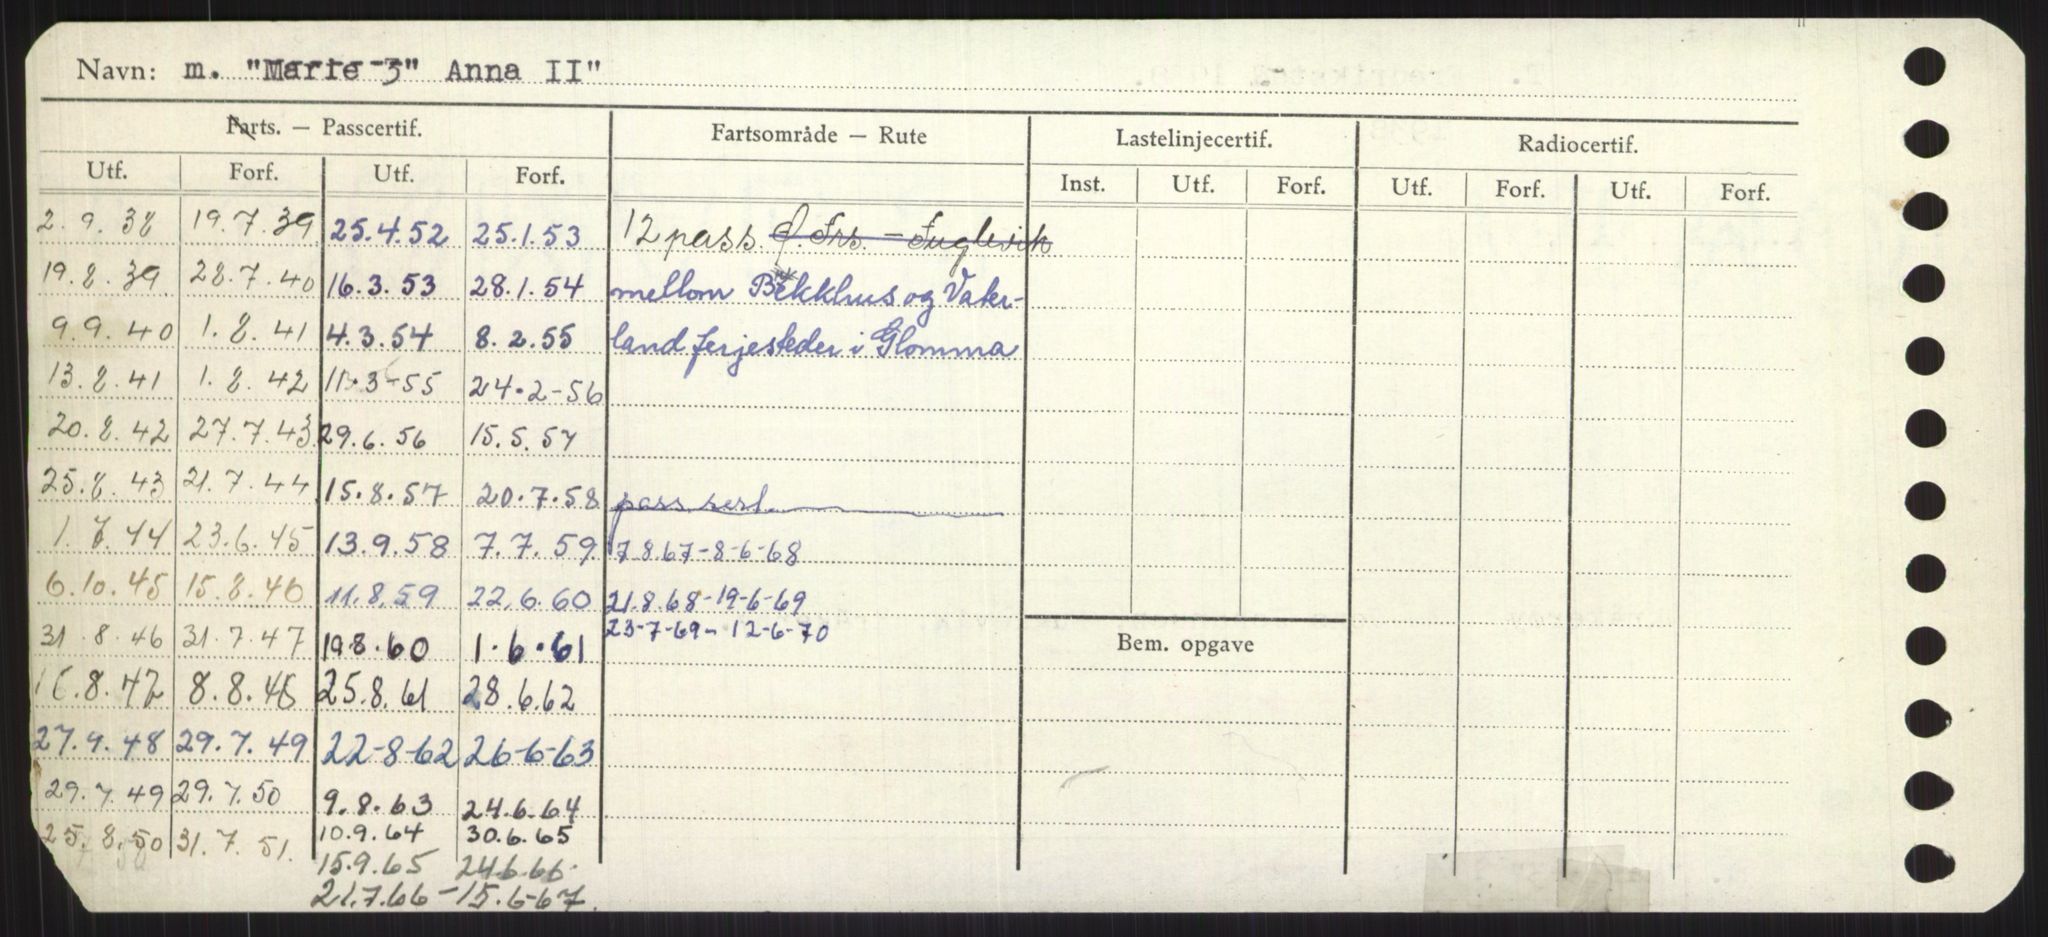 Navn: m. "Marie 3" Anna II"
Farts. — Passcertif. Fartsområde — Rute Lastelinjecertif. Radiocertif.
Utf. Forf. Utf. Forf. Inst. Utf. Forf. Utf. Forf. Utf. Forf.
2.9.38 19.7.39 25.4.52 25.1.53 12 pass. Frs. - Fuglevik
19.8.39 28.7.40 16.3.53 28.1.54 mellom Bekkhus og Vater-
9.9.40 1.8.41 4.3.54 8.2.55 land ferjesteder i Glomma
13.8.41 1.8.42 11.3-55 24.2-56
20.8.42 27.7.43 29.6.56 15.5.57
25.8.43 21.7.44 15.8.57 20.7.58 pass.sert.
1.7.44 23.6.45 13.9.58 7.7.59 7.8.67-8-6-68
6.10.45 15.8.46 11.8.59 22.6.60 21.8.68-19-6-69
31.8.46 31.7.47 19.8.60 1.6.61 23-7-69- 12-6-70
Bem. opgave
16.8.47 8.8.48 25.8.61 28.6.62
27.9.48 29.7.49 22-8-62 26-6-63
29.7.49 29.7.50 9.8.63 24.6.64
25.8.50 31.7.51. 10.9.64 30.6.65
15.9.65 24.6.66.
21.7.66-15.6-67.